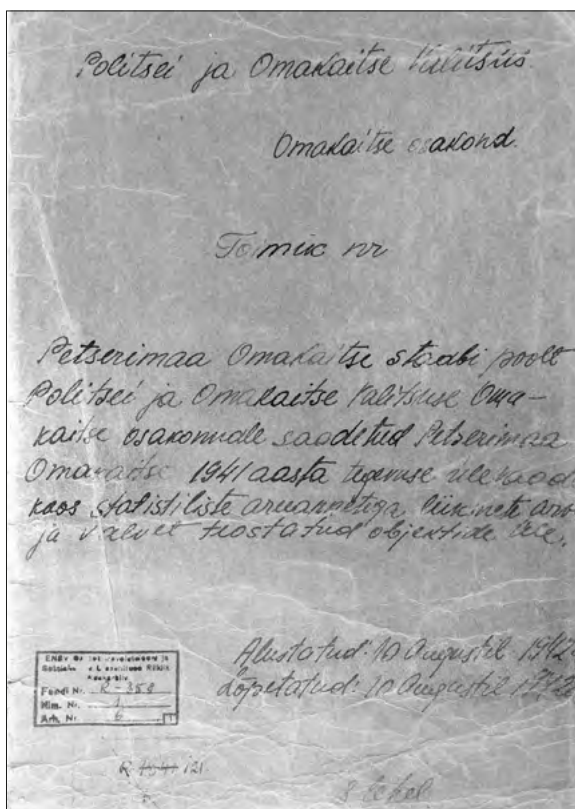 Politsei ja Omakaitse Valitsus.
Omakaitse osakond.
Toimik nr
Petserimaa Omakaitse staabi poolt
Politsei ja Omakaitse Valitsuse Oma-
kaitse osakonnale saadetud Petserimaa
Omakaitse 1941 aasta tegevuse ülevaade
koos statistiliste aruannetega, liikmete arvu
ja valvet teostatud objektide üle.
Alustatud: 10 Augustil 1942
Lõpetatud: 10 Augustil 1942
ENSV
Fondi Nr. R-358
Nim. Nr. 1
Arh. Nr. 6
8 lehel